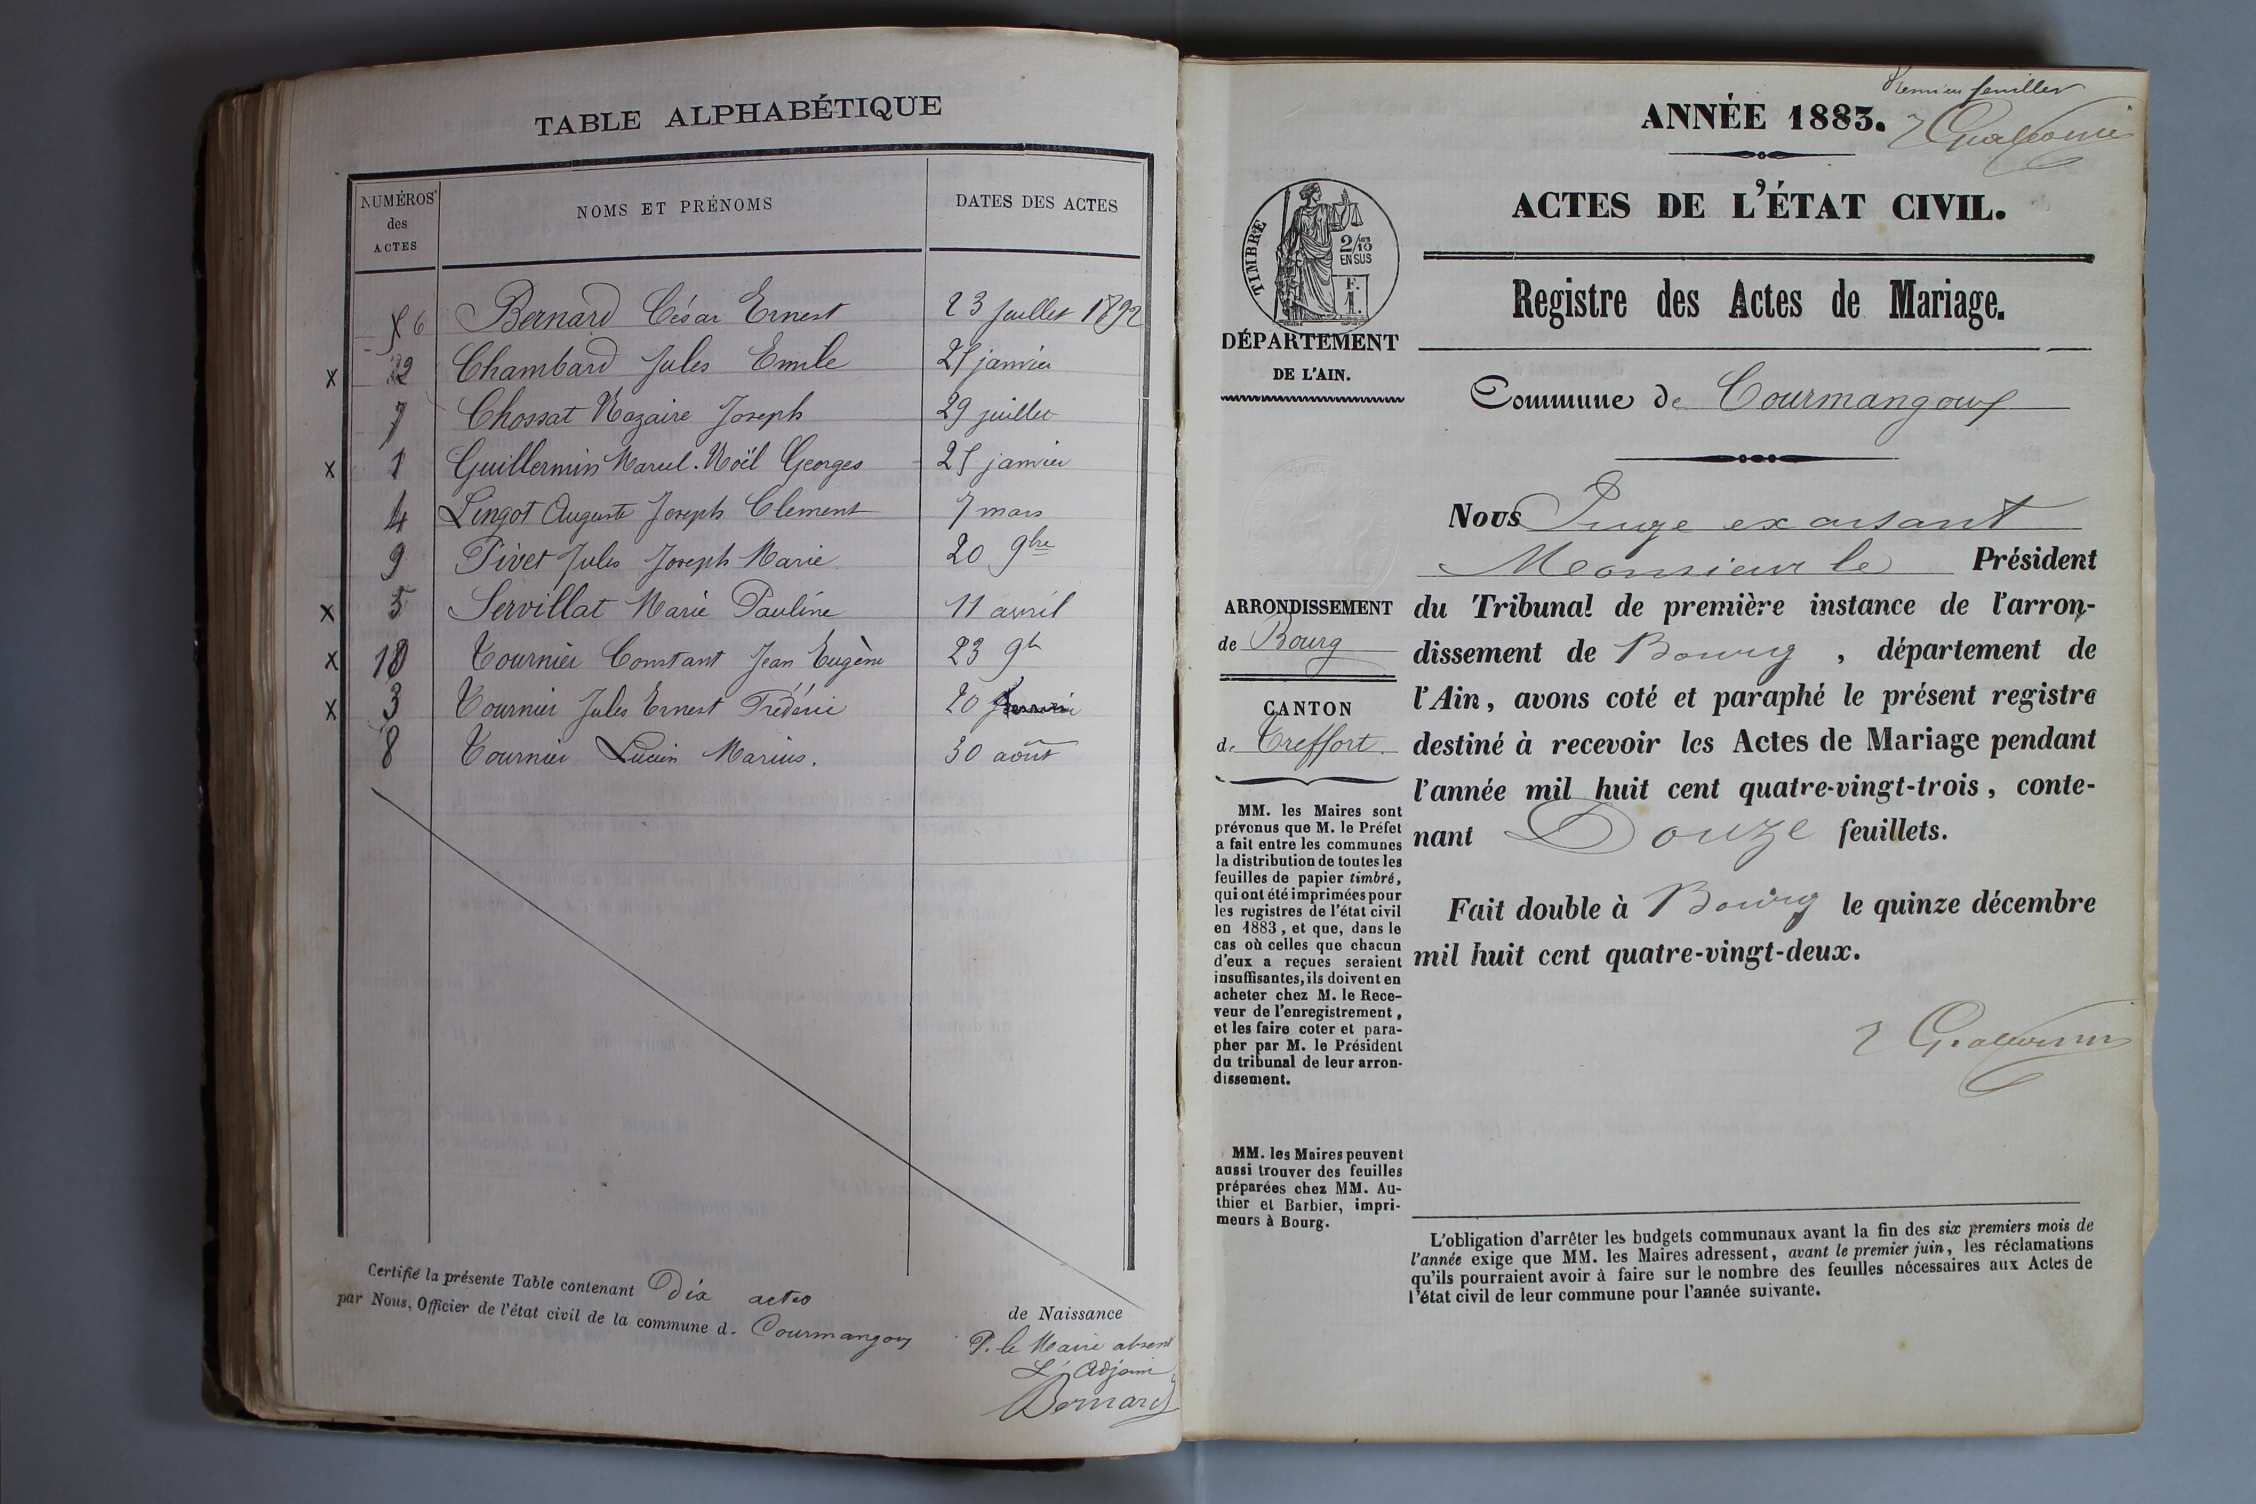 TABLE ALPHABÉTIQUE
NUMÉROS des ACTES
NOMS ET PRÉNOMS
DATES DES ACTES
6 Bernard César Ernest 23 juillet 1892
x 2 Chambard Jules Emile 25 janvier
7 Chossat Nazaire Joseph 29 juillet
x 1 Guillermin Marcel. Noël Georges 25 janvier
4 Lingot Auguste Joseph Clement 7 mars
9 Pivet Jules Joseph Marie 20 9bre
x 5 Servillat Marie Pauline 11 avril
x 10 Tournier Constant Jean Eugène 23 9b
x 3 Tournier Jules Ernest Frédéric 20
8 Tournier Lucien Marius. 30 août
Certifié la présente Table contenant Dix actes de Naissance
par Nous, Officier de l'état civil de la commune d. Courmangoux
P. le Maire absent
L'Adjoint
Bernard
Premier feuillet
ANNÉE 1883.
ACTES DE L'ÉTAT CIVIL.
Registre des Actes de Mariage.
Commune de Courmangoux
TIMBRE
2/10 EN SUS
F. 1.
DÉPARTEMENT
DE L'AIN.
ARRONDISSEMENT
de Bourg
CANTON
de Treffort.
MM. les Maires sont
prévenus que M. le Préfet
a fait entre les communes
la distribution de toutes les
feuilles de papier timbré,
qui ont été imprimées pour
les registres de l'état civil
en 1883, et que, dans le
cas où celles que chacun
d'eux a reçues seraient
insuffisantes, ils doivent en
acheter chez M. le Rece-
veur de l'enregistrement,
et les faire coter et para-
pher par M. le Président
du tribunal de leur arron-
dissement.
MM. les Maires peuvent
aussi trouver des feuilles
préparées chez MM. Au-
thier et Barbier, impri-
meurs à Bourg.
Nous Juge
Monsieur le Président
du Tribunal de première instance de l'arron-
dissement de Bourg, département de
l'Ain, avons coté et paraphé le présent registre
destiné à recevoir les Actes de Mariage pendant
l'année mil huit cent quatre-vingt-trois, conte-
nant Douze feuillets.
Fait double à Bourg le quinze décembre
mil huit cent quatre-vingt-deux.
L'obligation d'arrêter les budgets communaux avant la fin des six premiers mois de
l'année exige que MM. les Maires adressent, avant le premier juin, les réclamations
qu'ils pourraient avoir à faire sur le nombre des feuilles nécessaires aux Actes de
l'état civil de leur commune pour l'année suivante.